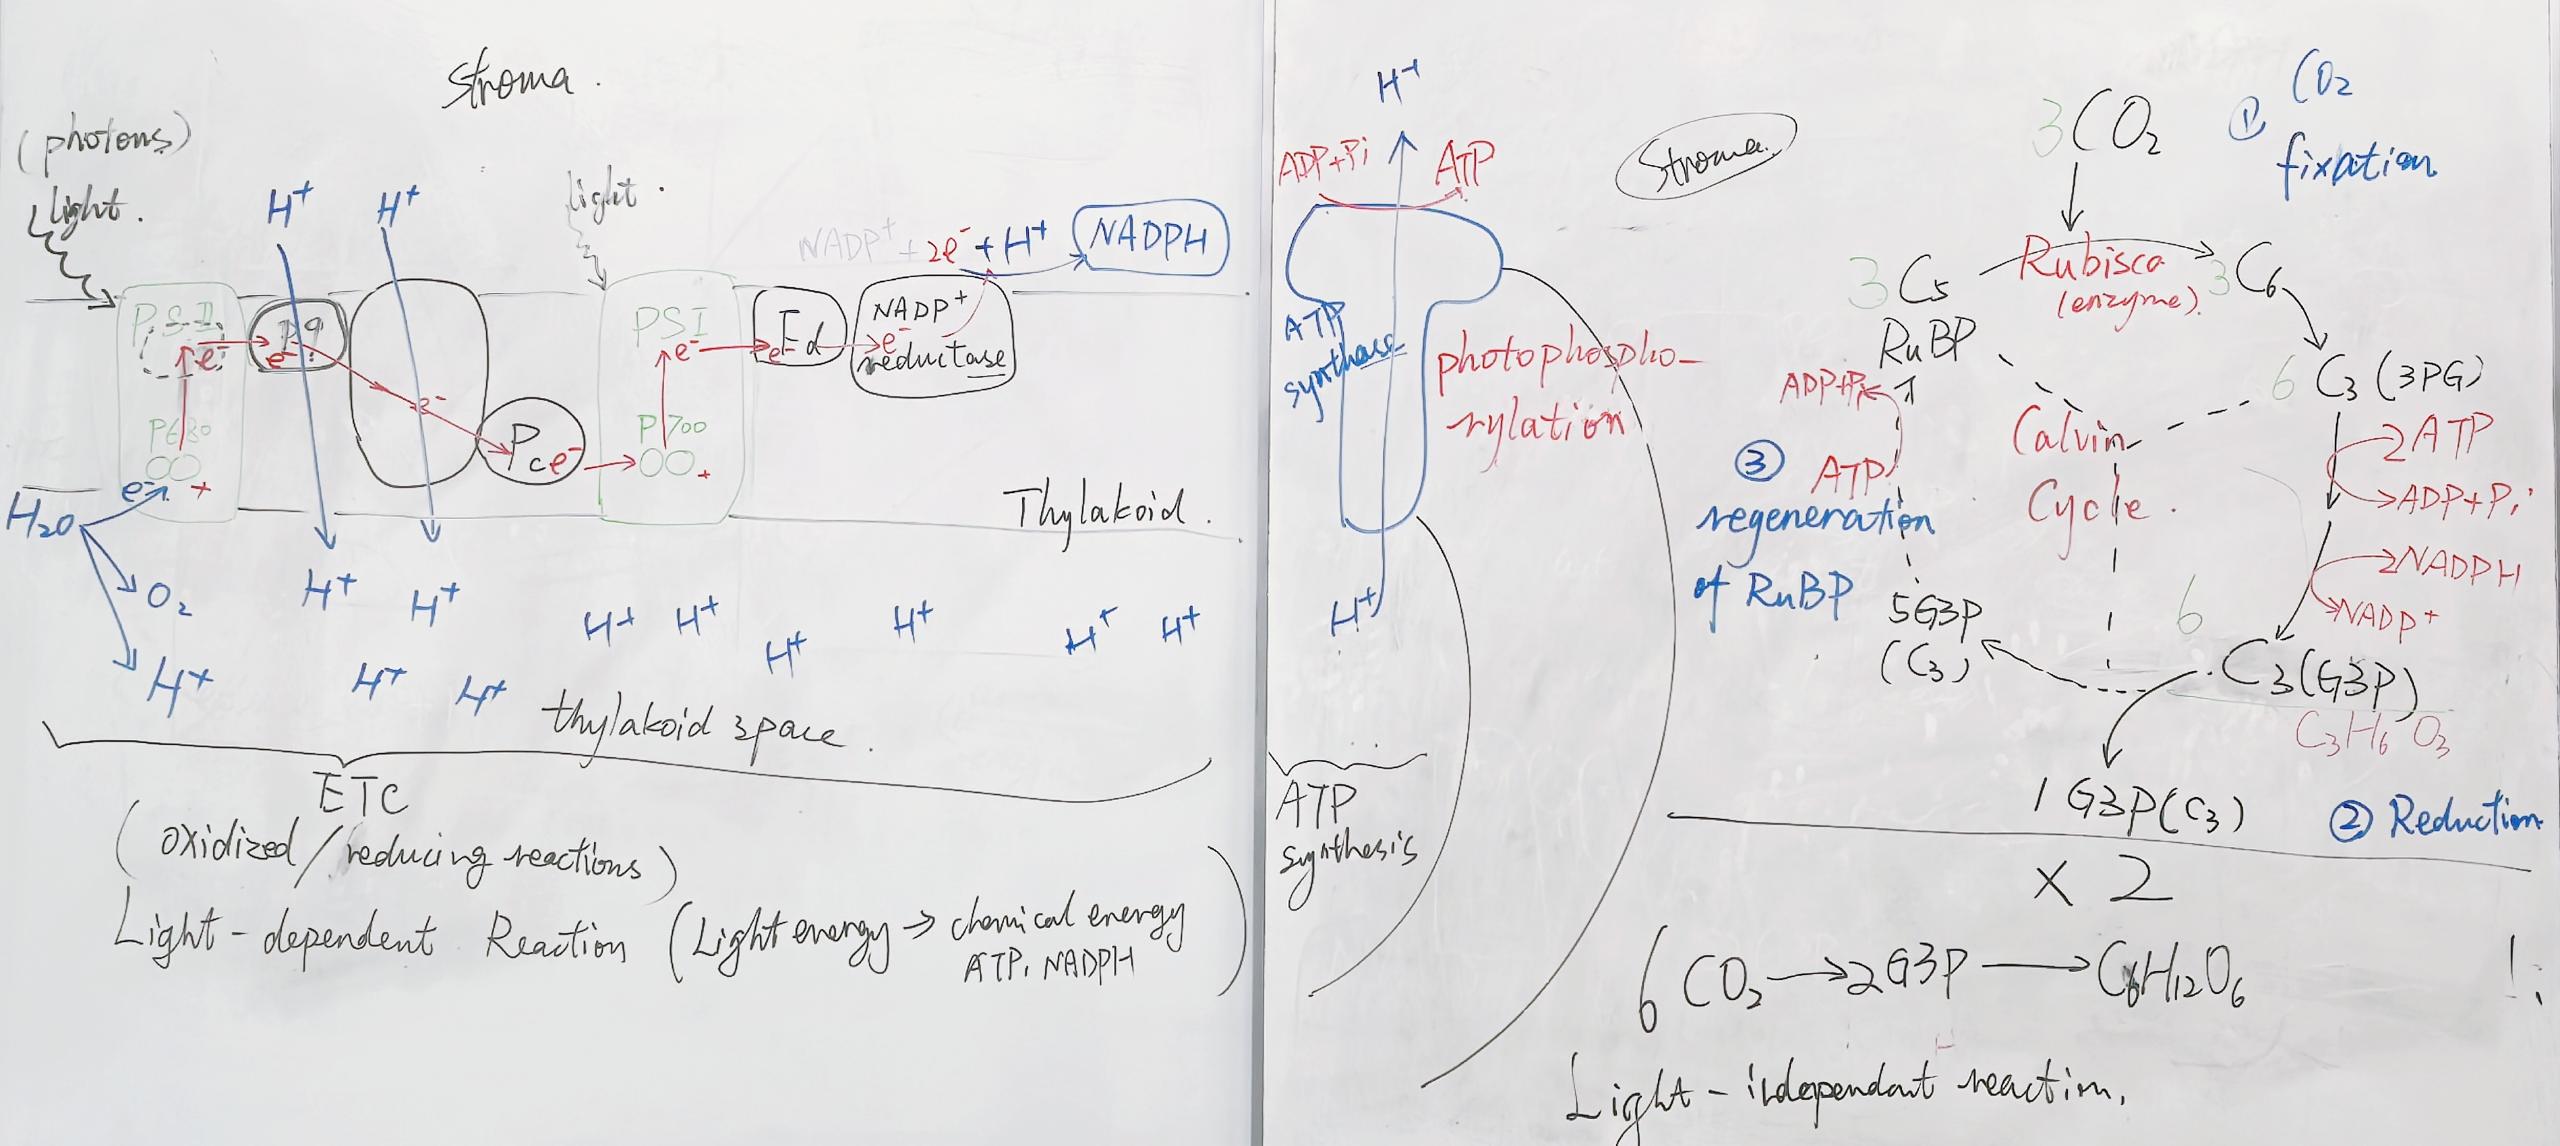 Stroma.
(photons)
light.
H⁺
H⁺
light.
NADP⁺ + 2e⁻ + H⁺
NADPH
PSII
e⁻
P680
e⁻
+
Pq
e⁻
e⁻
Pc
e⁻
PSI
e⁻
P700
+
Fd
e⁻
NADP⁺
e⁻
reductase
H₂O
Thylakoid.
O₂
H⁺
H⁺
H⁺
H⁺
H⁺
H⁺
H⁺
H⁺
H⁺
H⁺
H⁺
thylakoid space.
ETC
(oxidized/reducing reactions)
Light-dependent Reaction (Light energy → chemical energy
ATP, NADPH)
H⁺
ADP+Pi
ATP
ATP
synthase
photophospho-
rylation
H⁺
ATP
synthesis
Stroma.
3CO₂
① CO₂
fixation
3C₅
RuBP
Rubisco
(enzyme).
3C₆
6 C₃ (3PG)
ADP+Pi
ATP
Calvin
Cycle.
2ATP
ADP+Pi
2NADPH
NADP⁺
③
regeneration
of RuBP
5G3P
(C₃)
6
C₃(G3P)
C₃H₆O₃
1 G3P(C₃)
② Reduction
x 2
6 CO₂ → 2G3P → C₆H₁₂O₆
!:
Light-independant reaction.